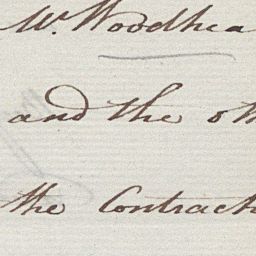 Mr. Woodhea
and the oth
the Contract